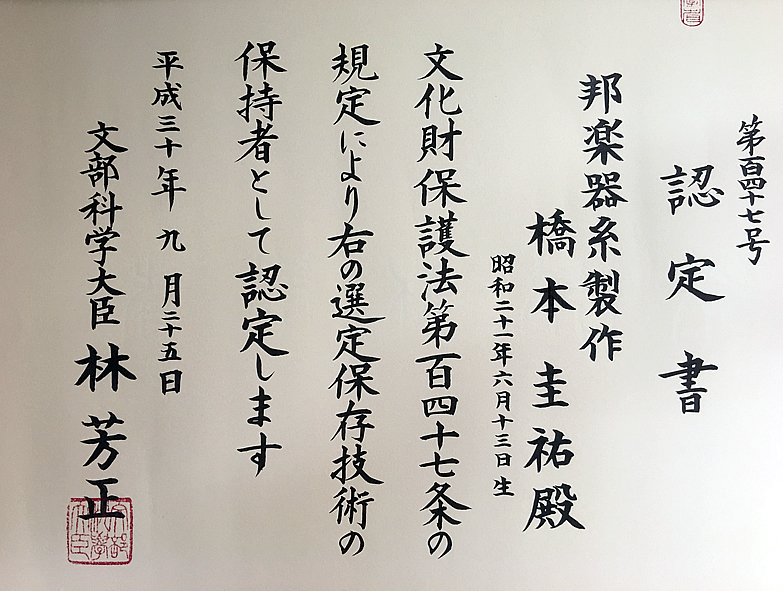 第百四十七号
認定書
邦楽器糸製作
橋本圭祐殿
昭和二十一年六月十三日生
文化財保護法第百四十七条の
規定により右の選定保存技術の
保持者として認定します
平成三十年九月二十五日
文部科学大臣 林芳正